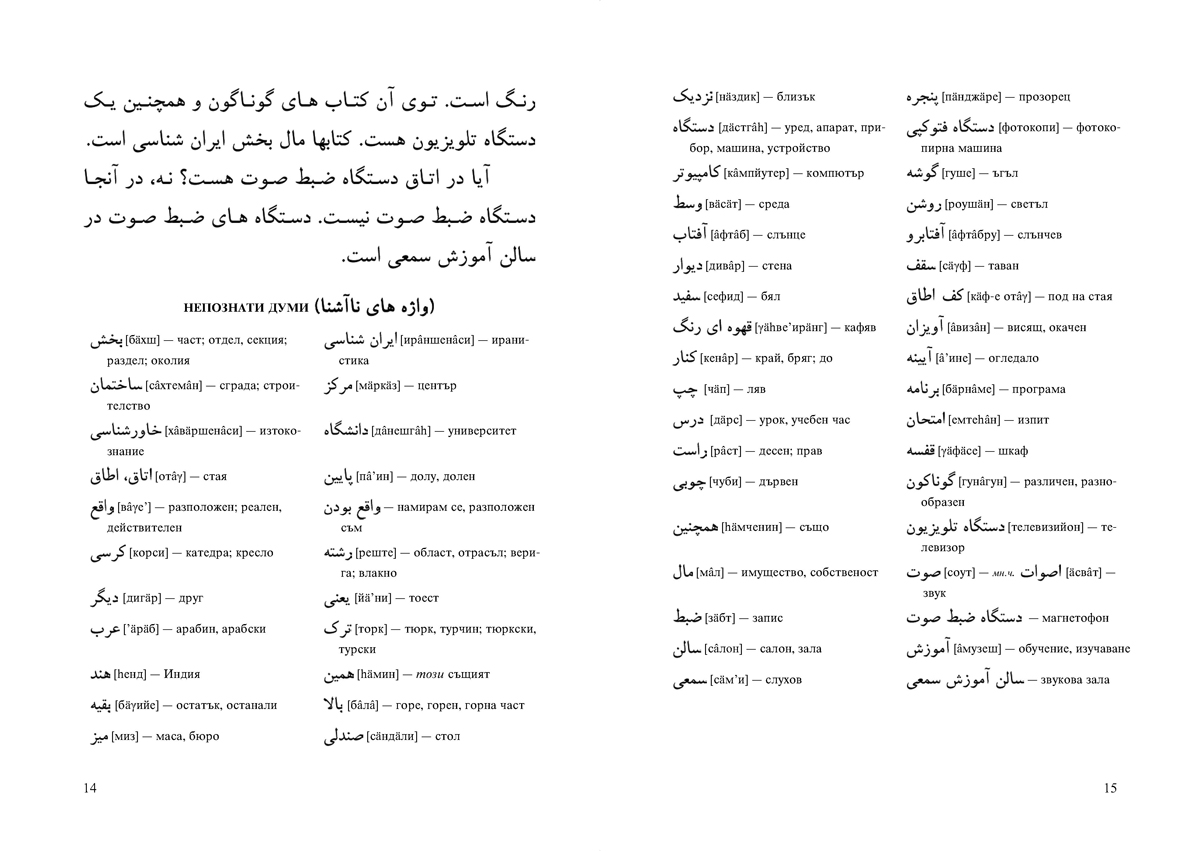 رنـگ اسـت. تـوی آن کتـاب هـای گونـاگون و همچنـین یـک
دستگاه تلویزیون هست. کتابها مال بخش ایران شناسی است.
آیا در اتـاق دسـتگاه ضـبط صـوت هسـت؟ نـه، در آنجـا
دسـتگاه ضـبط صـوت نیسـت. دسـتگاه هـای ضـبط صـوت در
سالن آموزش سمعی است.
НЕПОЗНАТИ ДУМИ (واژه های ناآشنا)
بخش [бäхш] — част; отдел, секция;
раздел; околия
ساختمان [сâхтемâн] — сграда; строи-
телство
خاورشناسی [хâвäршенâси] — изтоко-
знание
اتاق، اطاق [отâγ] — стая
واقع [вâγе’] — разположен; реален,
действителен
کرسی [корси] — катедра; кресло
دیگر [дигäр] — друг
عرب [’äрäб] — арабин, арабски
هند [hенд] — Индия
بقیه [бäγийе] — остатък, останали
میز [миз] — маса, бюро
ایران شناسی [ирâншенâси] — ирани-
стика
مرکز [мäркäз] — център
دانشگاه [дâнешгâh] — университет
پایین [пâ’ин] — долу, долен
واقع بودن — намирам се, разположен
съм
رشته [реште] — област, отрасъл; вери-
га; влакно
یعنی [йä’ни] — тоест
ترک [торк] — тюрк, турчин; тюркски,
турски
همین [häмин] — този същият
بالا [бâлâ] — горе, горен, горна част
صندلی [сäндäли] — стол
14
نزدیک [нäздик] — близък
دستگاه [дäстгâh] — уред, апарат, при-
бор, машина, устройство
کامپیوتر [кâмпйутер] — компютър
وسط [вäсäт] — среда
آفتاب [âфтâб] — слънце
دیوار [дивâр] — стена
سفید [сефид] — бял
قهوه ای رنگ [γähве’ирäнг] — кафяв
کنار [кенâр] — край, бряг; до
چپ [чäп] — ляв
درس [дäрс] — урок, учебен час
راست [рâст] — десен; прав
چوبی [чуби] — дървен
همچنین [häмченин] — също
مال [мâл] — имущество, собственост
ضبط [зäбт] — запис
سالن [сâлон] — салон, зала
سمعی [сäм’и] — слухов
پنجره [пäнджäре] — прозорец
دستگاه فتوکپی [фотокопи] — фотоко-
пирна машина
گوشه [гуше] — ъгъл
روشن [роушäн] — светъл
آفتابرو [âфтâбру] — слънчев
سقف [сäγф] — таван
کف اطاق [кäф-е отâγ] — под на стая
آویزان [âвизâн] — висящ, окачен
آیینه [â’ине] — огледало
برنامه [бäрнâме] — програма
امتحان [емтеhâн] — изпит
قفسه [γäфäсе] — шкаф
گوناکون [гунâгун] — различен, разно-
образен
دستگاه تلویزیون [телевизийон] — те-
левизор
صوت [соут] — мн.ч. اصوات [äсвâт] —
звук
دستگاه ضبط صوت — магнетофон
آموزش [âмузеш] — обучение, изучаване
سالن آموزش سمعی — звукова зала
15